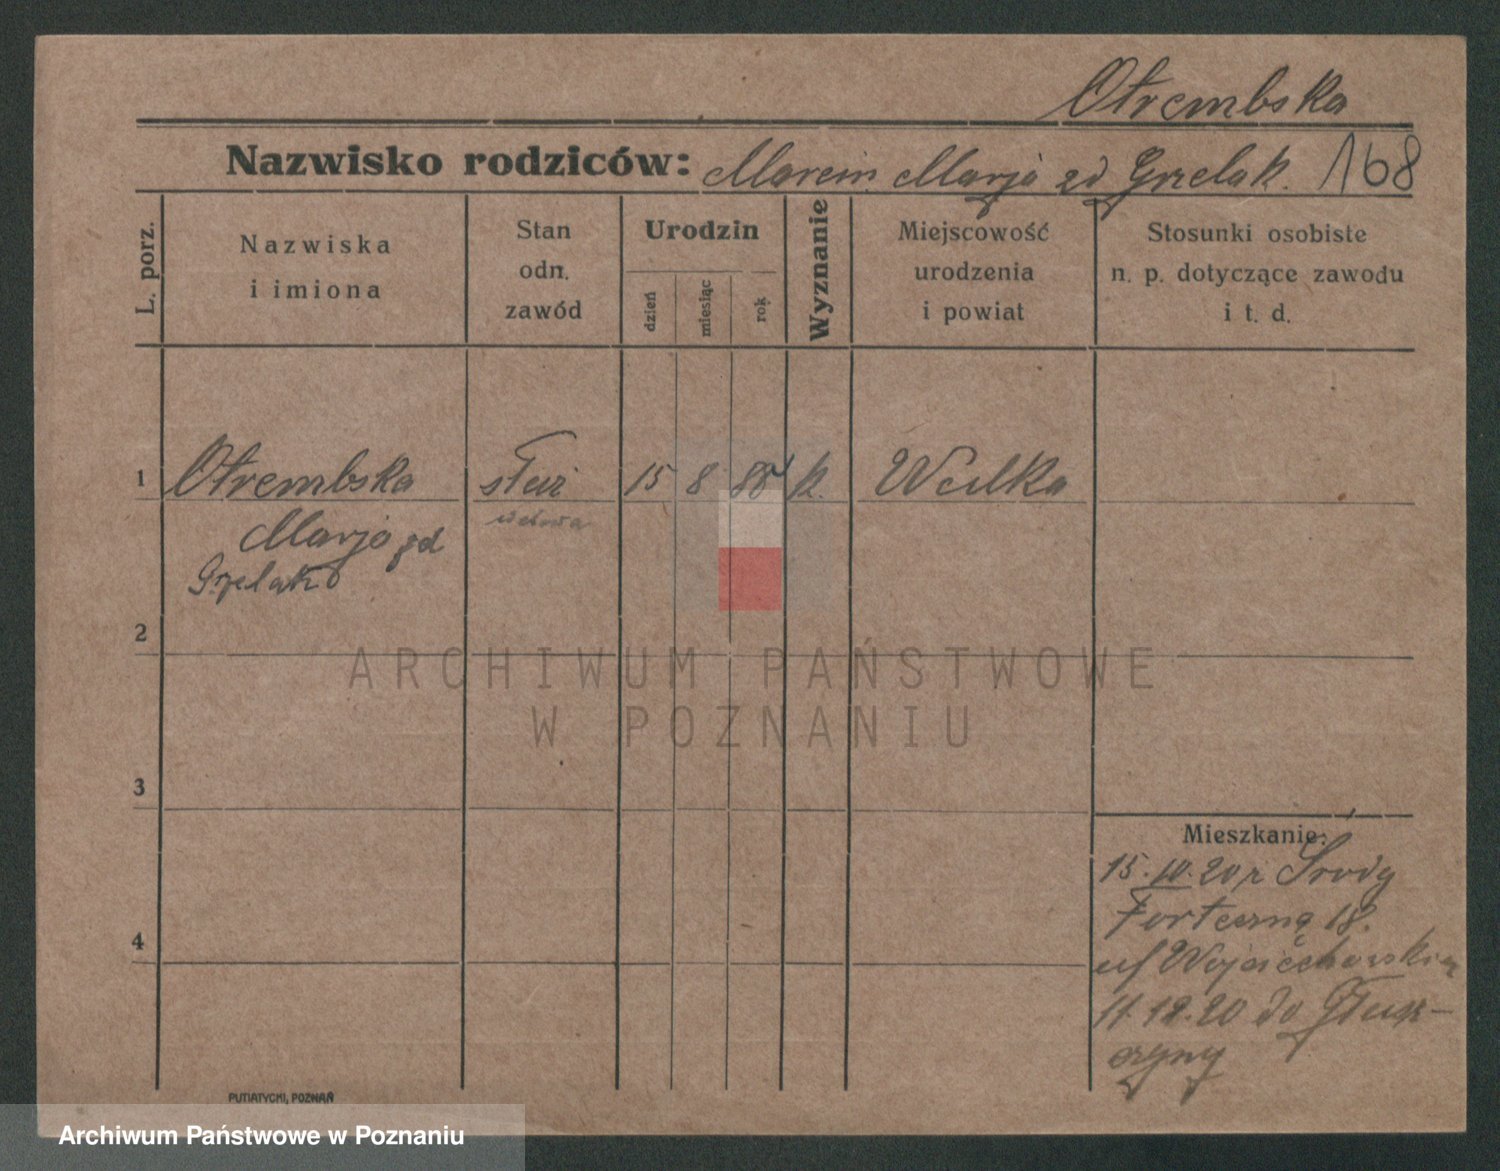 Otrembska
Nazwisko rodziców: Marcin Marja zd Grzelak. 168
L. porz.
Nazwiska
i imiona
Stan
odn.
zawód
Urodzin
dzień
miesiąc
rok
Wyznanie
Miejscowość
urodzenia
i powiat
Stosunki osobiste
n. p. dotyczące zawodu
i t. d.
1 Otrembska służ 15 8 k. Wulka
wdowa
Marja zd
Grzelak
2
ARCHIWUM PAŃSTWOWE
W POZNANIU
3
Mieszkanie:
15.10.20 z Środy
Forteczna 18.
u/ Wojciechowskim
4
11.12.20 do Głusz-
czyny
PUTIATYCKI, POZNAŃ
Archiwum Państwowe w Poznaniu